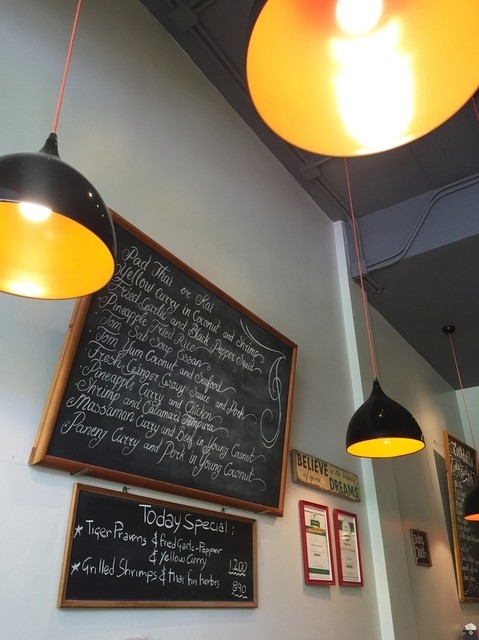 Pad Thai or Kai
Yellow Curry in Coconut and Shrimp
Fried Garlic and Black Pepper Squid
Pineapple Fried Rice
Tom Sed Sour Essan
Tom Yum Coconut and Seafood
Fresh Ginger Gravy Sauce and Pork
Pineapple Curry and Chicken
Shrimp and Calamari Tempura
Massaman Curry and Beef in Young Coconut
Paneny Curry and Pork in Young Coconut
Today Special :
* Tiger Prawns & fried Garlic-Pepper
& Yellow Curry 1,200
* Grilled Shrimps & thai fan herbs
890
BELIEVE in the beauty
of your DREAMS